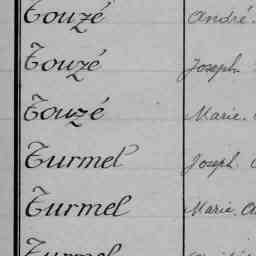 Touzé André.
Touzé Joseph.
Touzé Marie.
Turmel Joseph
Turmel Marie.
Turmel